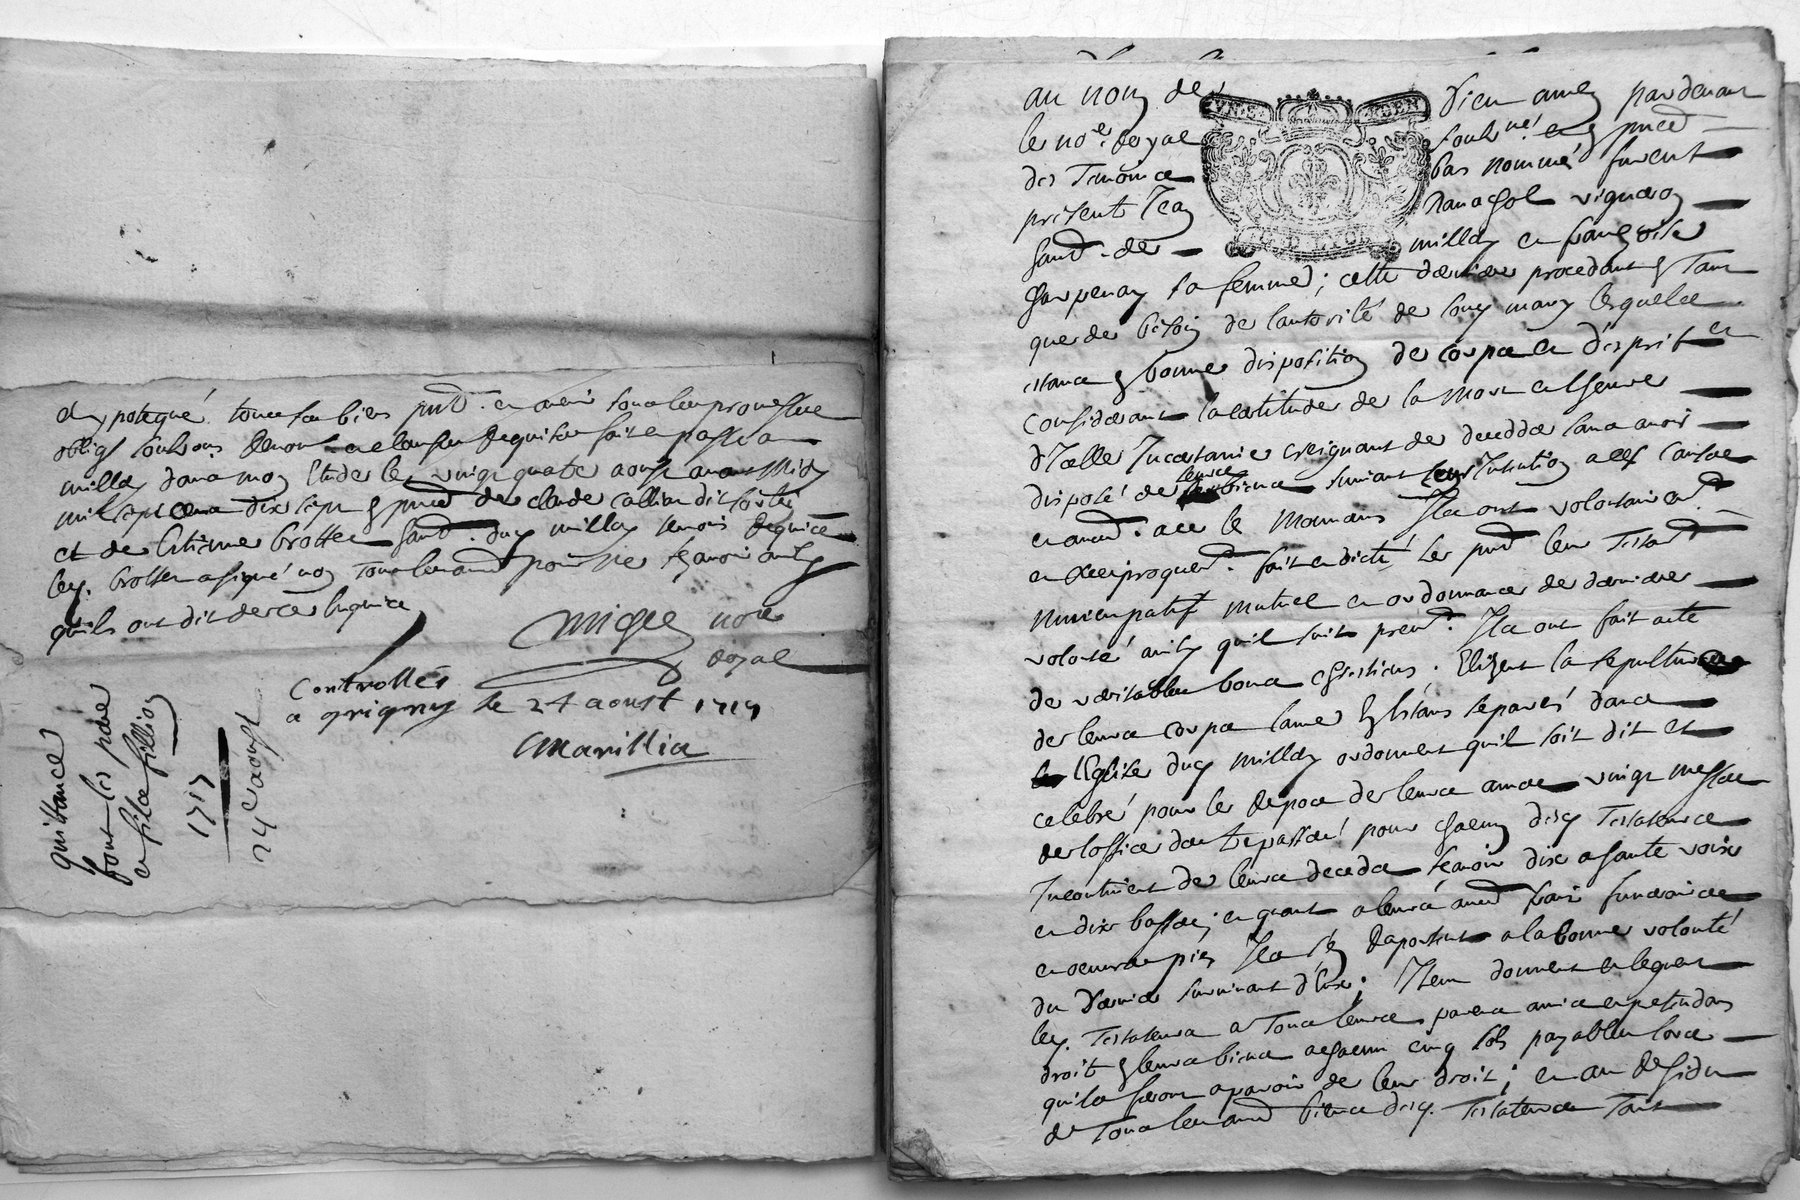 hypotequé tous ses biens pnt. et avenir sous les promesses
oblig. soubmis. renon. et clauses requises fait et passé a
millery dans mon Etude le vingt quatre aoust avant Midy
mil sept cens dix sept en pnce de claude
et de Estienne brottet hand. duy millery temoins requis
ley. brottet a signé non
quils ont dit de ce enquis
Migee no.re
Royal
Controllés
a grigny le 24 aoust 1717
Marillia
quittance
pour les pere
et fils fillion
1717
24e aoust
au nom de Dieu amen pardevant
le no.e Royal soubs.né en pnce
des Temoins bas nommé furent
present Jean vigneron
hand. de millery et françoise
sa femme; cette derniere procedant en Tant
que de besoin de lautorité de son mary lesquels
estans en bonne disposition de corps et d'esprit et
considerant la certitude de la Mort et lheure
d'Icelle Incertaine creignant de decedder sans avoir
disposé de leurs biens suivant leur Intention a ces causes
Ils ont volontairem.t
et Reciproquem.t fait et dicté le pnt leur Testam.t
Nuncupatif mutuel et ordonnance de derniere
volonté ainsy quil suit prem.t Ils ont fait acte
de veritables bons chrestiens. Elizent la sepulture
de leurs corps lame en Estans separés dans
lEglise duy millery ordonnent quil soit dit et
celebré pour le Repos de leurs ames vingt messes
de loffice des trepassés pour chacun desy Testateurs
Incontinent de leurs deceds scavoir dix a haute voix
et dix basses; et quant a leurs autres frais funeraires
et oeuvres pies Ils sen Raportent a la bonne volonté
du dernier survivant d'Eux; Item donnent et leguent
ley. Testateurs a Tous leurs parens amis et pretendans
droit en leurs biens a chacun cinq sols payables lors
quils feront aparoir de leur droit; et au Residu
de Tous leurs autres biens desy. Testateurs Tant